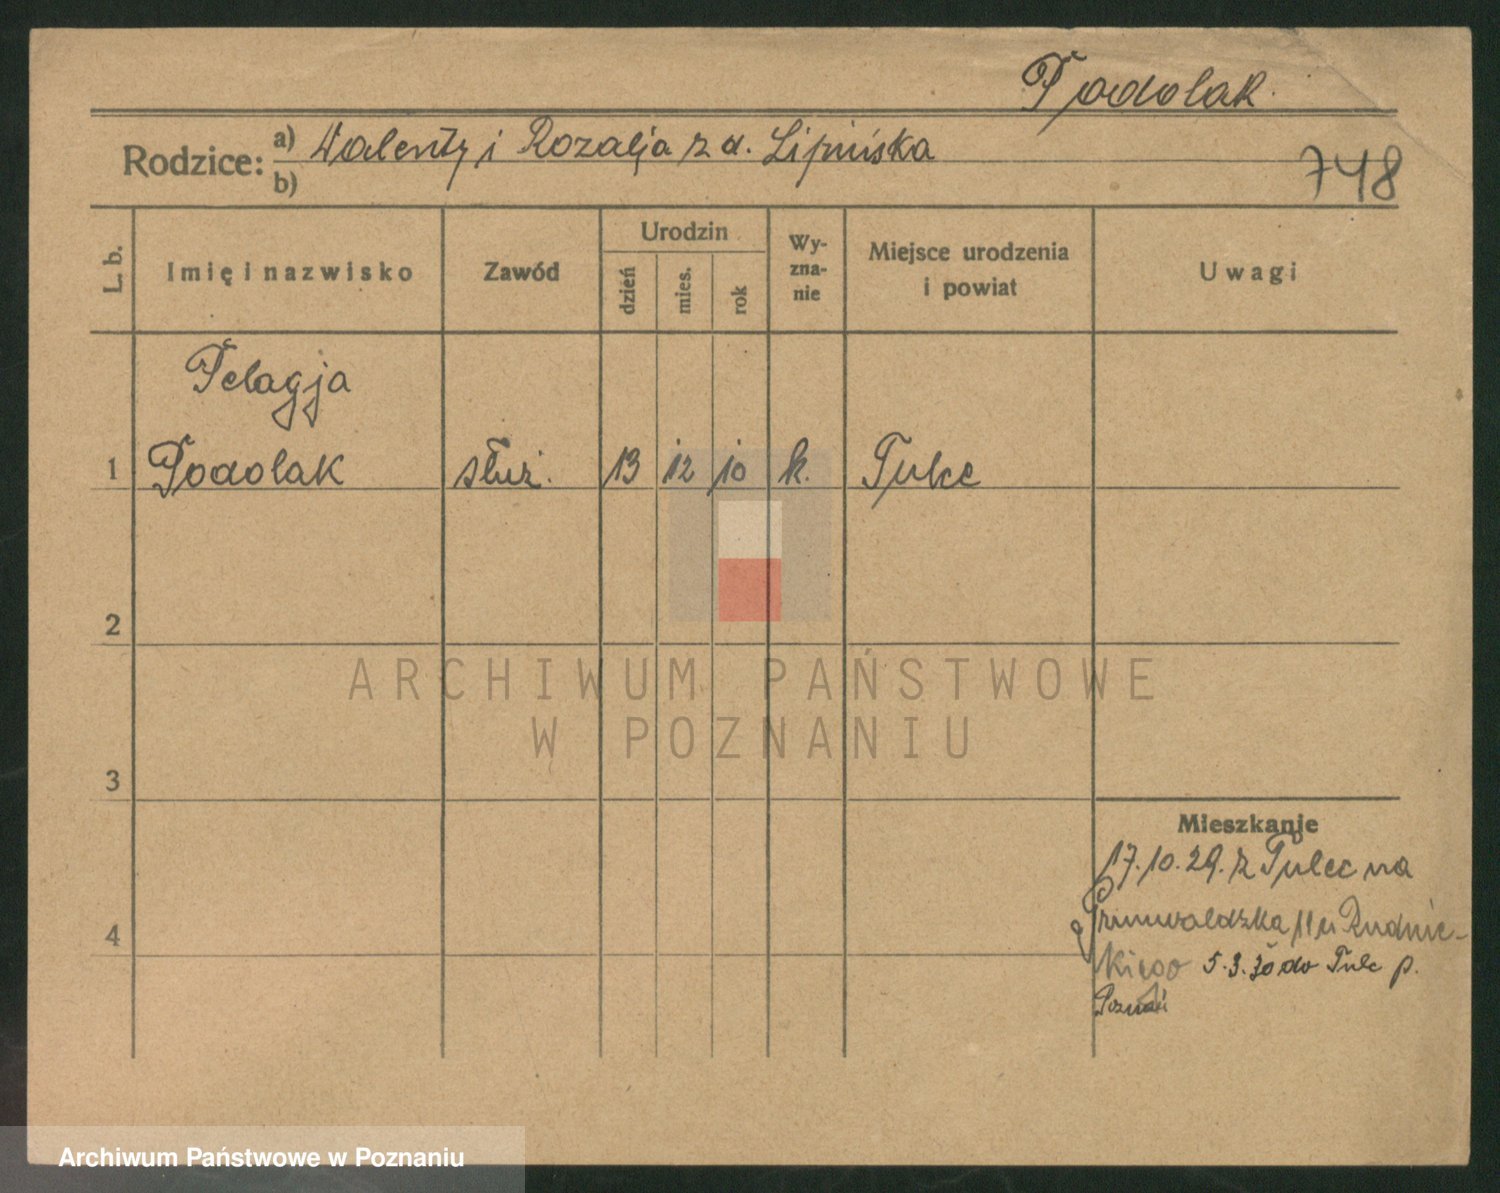 Podolak
Rodzice: a) Walenty i Rozalja z d. Lipińska
b)
748
L. b.
Imię i nazwisko
Zawód
Urodzin
dzień
mies.
rok
Wy-
zna-
nie
Miejsce urodzenia
i powiat
Uwagi
Pelagja
1 Podolak służ. 13 12 10 k. Tulce
2
3
4
Mieszkanie
17.10.29. z Tulec na
Grunwaldzka 11 u Rudnic-
kiego 5.3.30 do Tulc p.
Poznań
ARCHIWUM PAŃSTWOWE
W POZNANIU
Archiwum Państwowe w Poznaniu